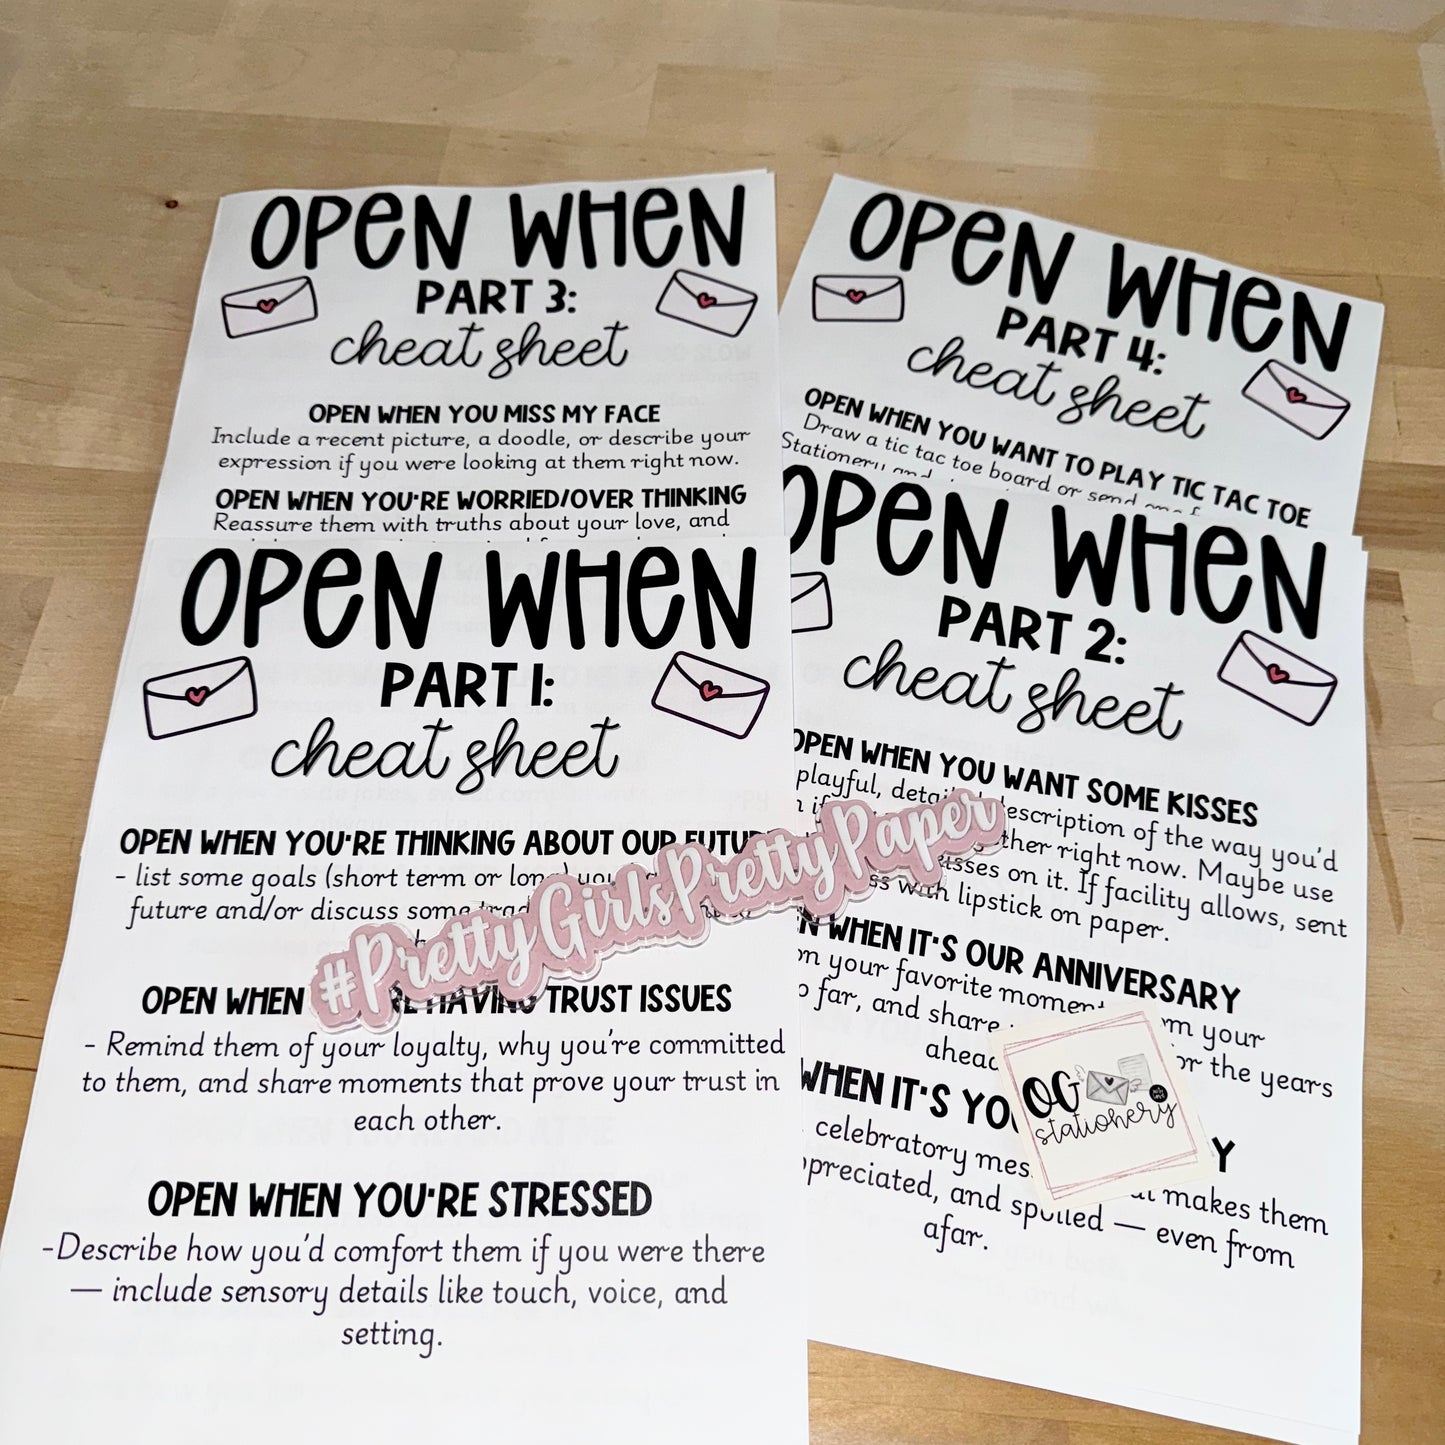 OPEN WHEN
PART 3:
cheat sheet
OPEN WHEN YOU MISS MY FACE
Include a recent picture, a doodle, or describe your
expression if you were looking at them right now.
OPEN WHEN YOU'RE WORRIED/OVER THINKING
Reassure them with truths about your love, and
OPEN WHEN
PART 4:
cheat sheet
OPEN WHEN YOU WANT TO PLAY TIC TAC TOE
Draw a tic tac toe board or send one
Stationery and
OPEN WHEN
PART 1:
cheat sheet
OPEN WHEN YOU'RE THINKING ABOUT OUR FUTURE
- list some goals (short term or long
future and/or discuss some
OPEN WHEN HAVING TRUST ISSUES
- Remind them of your loyalty, why you're committed
to them, and share moments that prove your trust in
each other.
OPEN WHEN YOU'RE STRESSED
-Describe how you'd comfort them if you were there
— include sensory details like touch, voice, and
setting.
OPEN WHEN
PART 2:
cheat sheet
OPEN WHEN YOU WANT SOME KISSES
playful, detailed description of the way you'd
right now. Maybe use
on it. If facility allows, sent
with lipstick on paper.
WHEN IT'S OUR ANNIVERSARY
on your favorite moments from your
far, and share
ahead for the years
WHEN IT'S
celebratory makes them
appreciated, and spoiled — even from
afar.
#PrettyGirlsPrettyPaper
OG
stationery